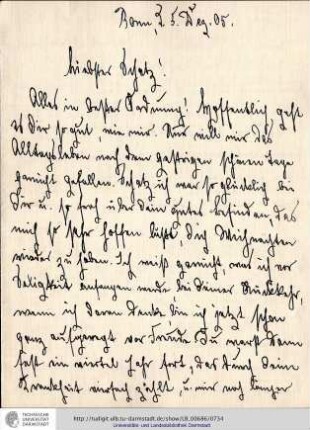 Bonn, d. 5. Dez. 05.
Liebster Schatz!
Alles in bester Ordnung! Hoffentlich geht
es Dir so gut, wie mir. Nur will mir das
Alltagsleben nach dem gestrigen schönen Tage
garnicht gefallen. Schatz ich war so glücklich bei
Dir u. so froh über Dein gutes Befinden, das
mich so sehr hoffen läßt, Dich Weihnachten
wieder zu haben. Ich weiß garnicht, was ich vor
Seligkeit anfangen werde bei Deiner Rückkehr,
wenn ich daran denke bin ich jetzt schon
ganz aufgeregt vor Freude. Du warst dann
fast ein viertel Jahr fort, das durch Deine
Krankheit zählt u. mir noch länger
TECHNISCHE
UNIVERSITÄT
DARMSTADT
http://tudigit.ulb.tu-darmstadt.de/show/LB_00686/0734
Universitäts- und Landesbibliothek Darmstadt